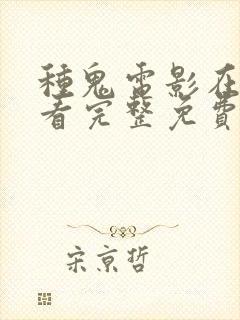 種鬼電影在
看完整免費
宋京哲